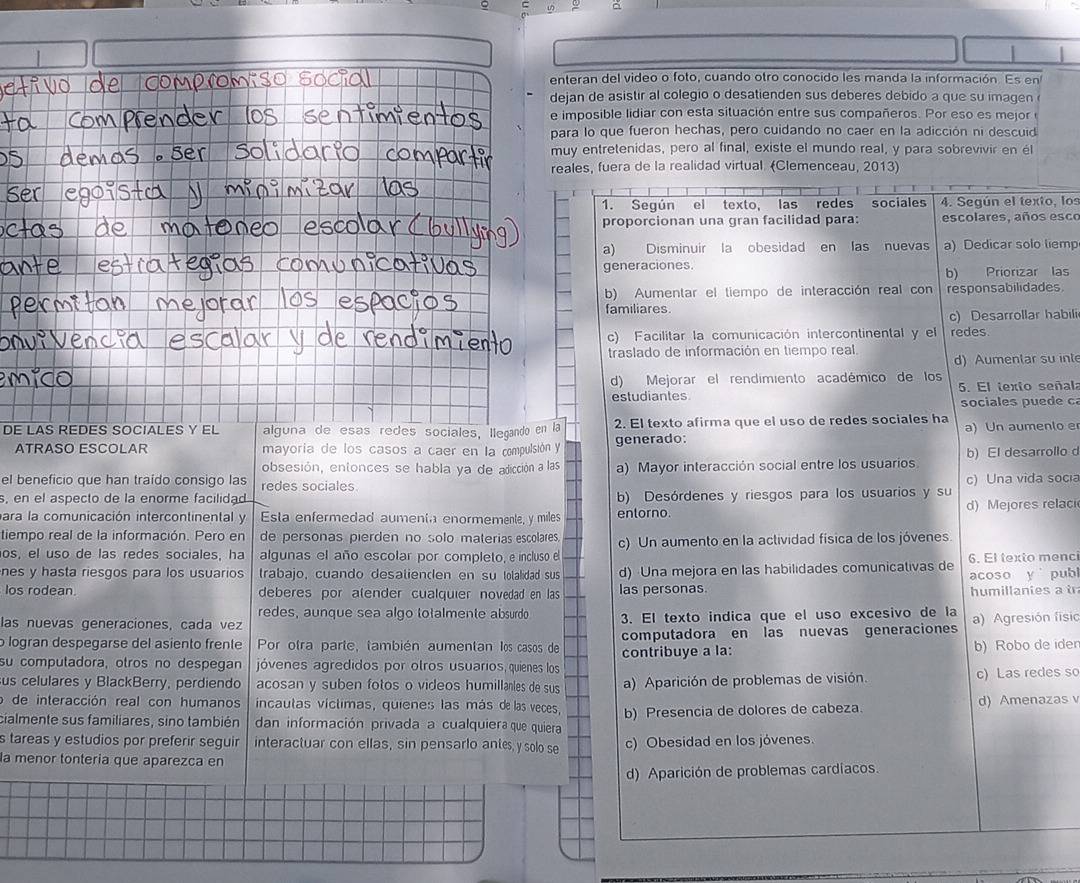 de compromiso social
comprender los sentimientos
demas. ser solidario compartir
ser egoista y minimizar las
de matoneo escolar (bullying)
estrategias comunicativas
permitan mejorar los espacios
escalar y de rendimiento
DE LAS REDES SOCIALES Y EL
ATRASO ESCOLAR
el beneficio que han traído consigo las
en el aspecto de la enorme facilidad
para la comunicación intercontinental y
tiempo real de la información. Pero en
el uso de las redes sociales, ha
y hasta riesgos para los usuarios
los rodean.
las nuevas generaciones, cada vez
logran despegarse del asiento frente
su computadora, otros no despegan
sus celulares y BlackBerry, perdiendo
de interacción real con humanos
sus familiares, sino también
tareas y estudios por preferir seguir
la menor tontería que aparezca en
alguna de esas redes sociales, llegando en la
mayoría de los casos a caer en la compulsión y
obsesión, entonces se habla ya de adicción a las
redes sociales.
Esta enfermedad aumenta enormemente, y miles
de personas pierden no solo materias escolares,
algunas el año escolar por completo, e incluso el
trabajo, cuando desatienden en su totalidad sus
deberes por atender cualquier novedad en las
redes, aunque sea algo totalmente absurdo
Por otra parte, también aumentan los casos de
jóvenes agredidos por otros usuarios, quienes los
acosan y suben fotos o videos humillantes de sus
incautas víctimas, quienes las más de las veces,
dan información privada a cualquiera que quiera
interactuar con ellas, sin pensarlo antes, y solo se
enteran del video o foto, cuando otro conocido les manda la información. Es en
dejan de asistir al colegio o desatienden sus deberes debido a que su imagen
e imposible lidiar con esta situación entre sus compañeros. Por eso es mejor
para lo que fueron hechas, pero cuidando no caer en la adicción ni descuid
muy entretenidas, pero al final, existe el mundo real, y para sobrevivir en él
reales, fuera de la realidad virtual. (Clemenceau, 2013)
1. Según el texto, las redes sociales
proporcionan una gran facilidad para:
a) Disminuir la obesidad en las nuevas
generaciones.
b) Aumentar el tiempo de interacción real con
familiares.
c) Facilitar la comunicación intercontinental y el
traslado de información en tiempo real.
d) Mejorar el rendimiento académico de los
estudiantes.
2. El texto afirma que el uso de redes sociales ha
generado:
a) Mayor interacción social entre los usuarios.
b) Desórdenes y riesgos para los usuarios y su
entorno.
c) Un aumento en la actividad física de los jóvenes.
d) Una mejora en las habilidades comunicativas de
las personas.
3. El texto indica que el uso excesivo de la
computadora en las nuevas generaciones
contribuye a la:
a) Aparición de problemas de visión.
b) Presencia de dolores de cabeza.
c) Obesidad en los jóvenes.
d) Aparición de problemas cardíacos.
4. Según el texto, los
escolares, años esco
a) Dedicar solo tiemp
b) Priorizar las
responsabilidades.
c) Desarrollar habili
redes.
d) Aumentar su inte
5. El texto señala
sociales puede ca
a) Un aumento en
b) El desarrollo d
c) Una vida socia
d) Mejores relaci
6. El texto menci
acoso y publ
humillantes a tra
a) Agresión físic
b) Robo de iden
c) Las redes so
d) Amenazas v